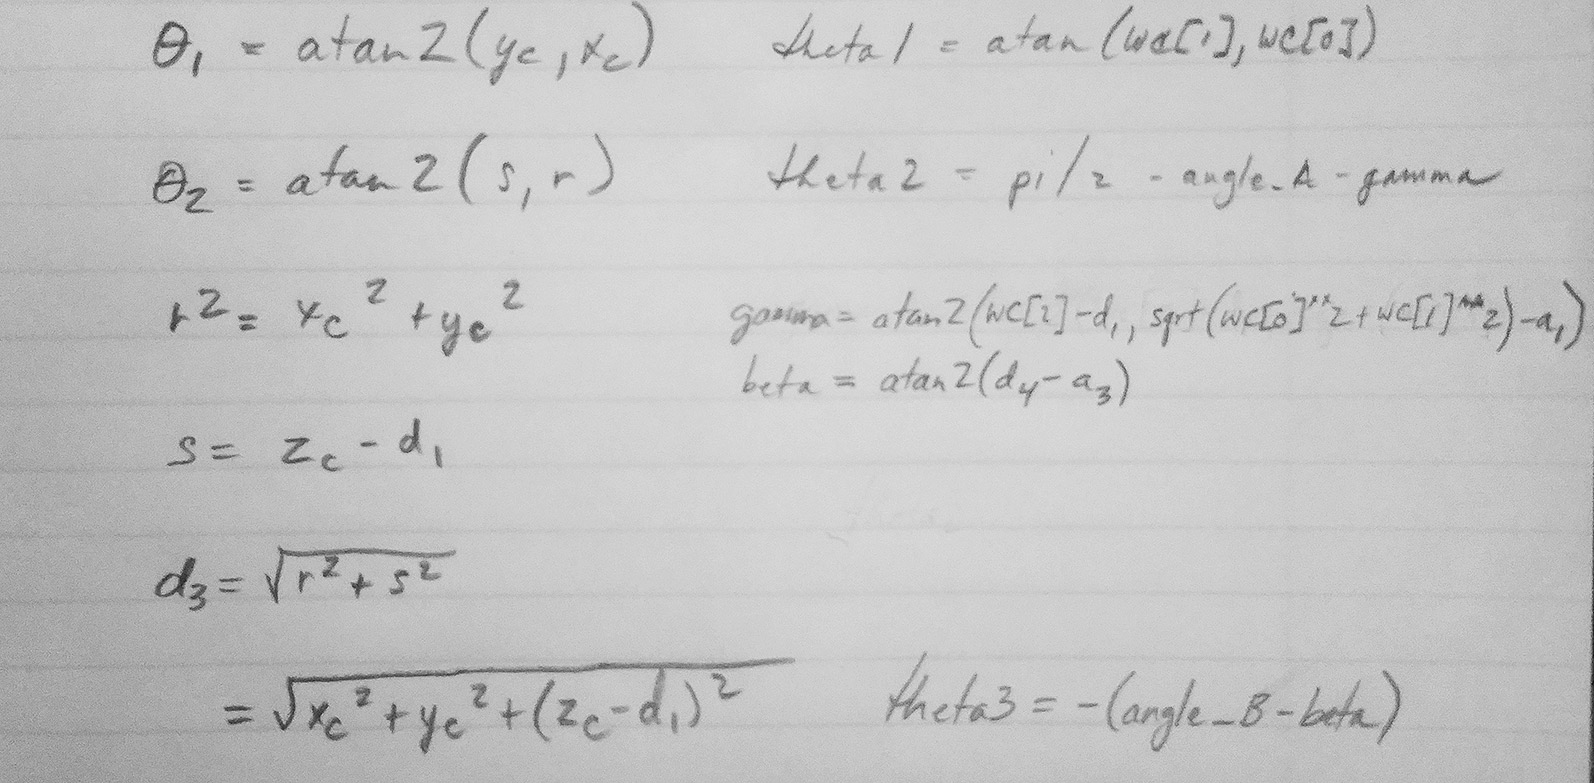 θ₁ = atan2(y_c, x_c) theta1 = atan(wc[1], wc[0])
θ₂ = atan2(s, r) theta2 = pi/2 - angle_A - gamma
r² = x_c² + y_c² gamma = atan2(wc[2]-d₁, sqrt(wc[0]**2+wc[1]**2)-a₁)
beta = atan2(d₄-a₃)
s = z_c - d₁
d₃ = √(r² + s²)
= √(x_c² + y_c² + (z_c - d₁)²) theta3 = -(angle_B-beta)